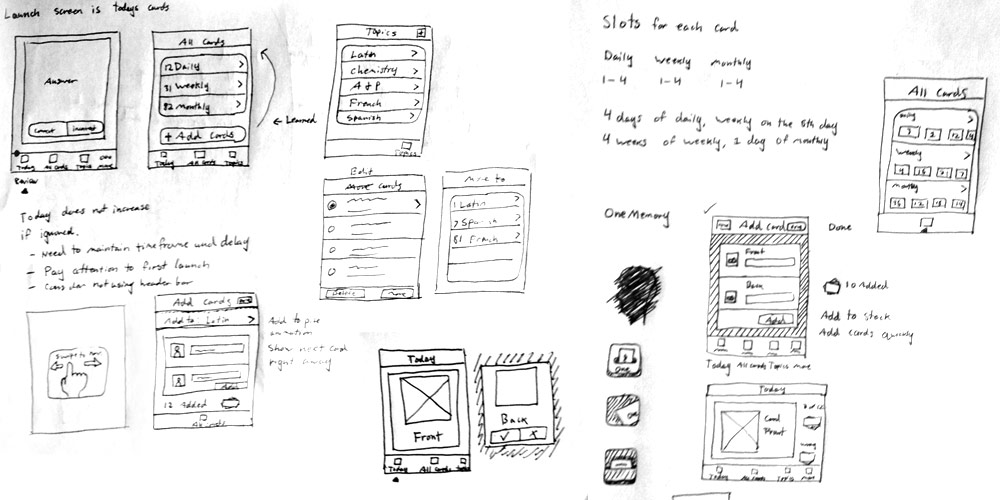 Launch screen is todays cards
Answer
Correct
Incorrect
Today
All Cards
Topics
More
Review
All Cards
12 Daily
31 Weekly
82 Monthly
+ Add Cards
Today
All Cards
Topics
← Learned
Topics
Latin
Chemistry
A & P
French
Spanish
Topics
Today does not increase
if ignored.
- Need to maintain timeframe und delay
- Pay attention to first launch
- Consider not using header bar
Edit
Move Cards
Delete
Move
Move to
1 Latin
7 Spanish
81 French
Swipe to
Add Cards
Add to: Latin
Add
12 Added
Add to pile
animation
Show next card
right away
Today
Front
Today
All Cards
Topics
Back
Slots for each card
Daily weekly monthly
1-4 1-4 1-4
4 days of daily, weekly on the 5th day
4 weeks of weekly, 1 day of monthly
All Cards
Daily
Weekly
Monthly
One Memory
One
Add Card
Done
Front
Back
Add
10 Added
Add to stack
Add cards quickly
Today All Cards Topics more
Today
Card
Front
3 of 12
wrong
Today
All Cards
Topics
More